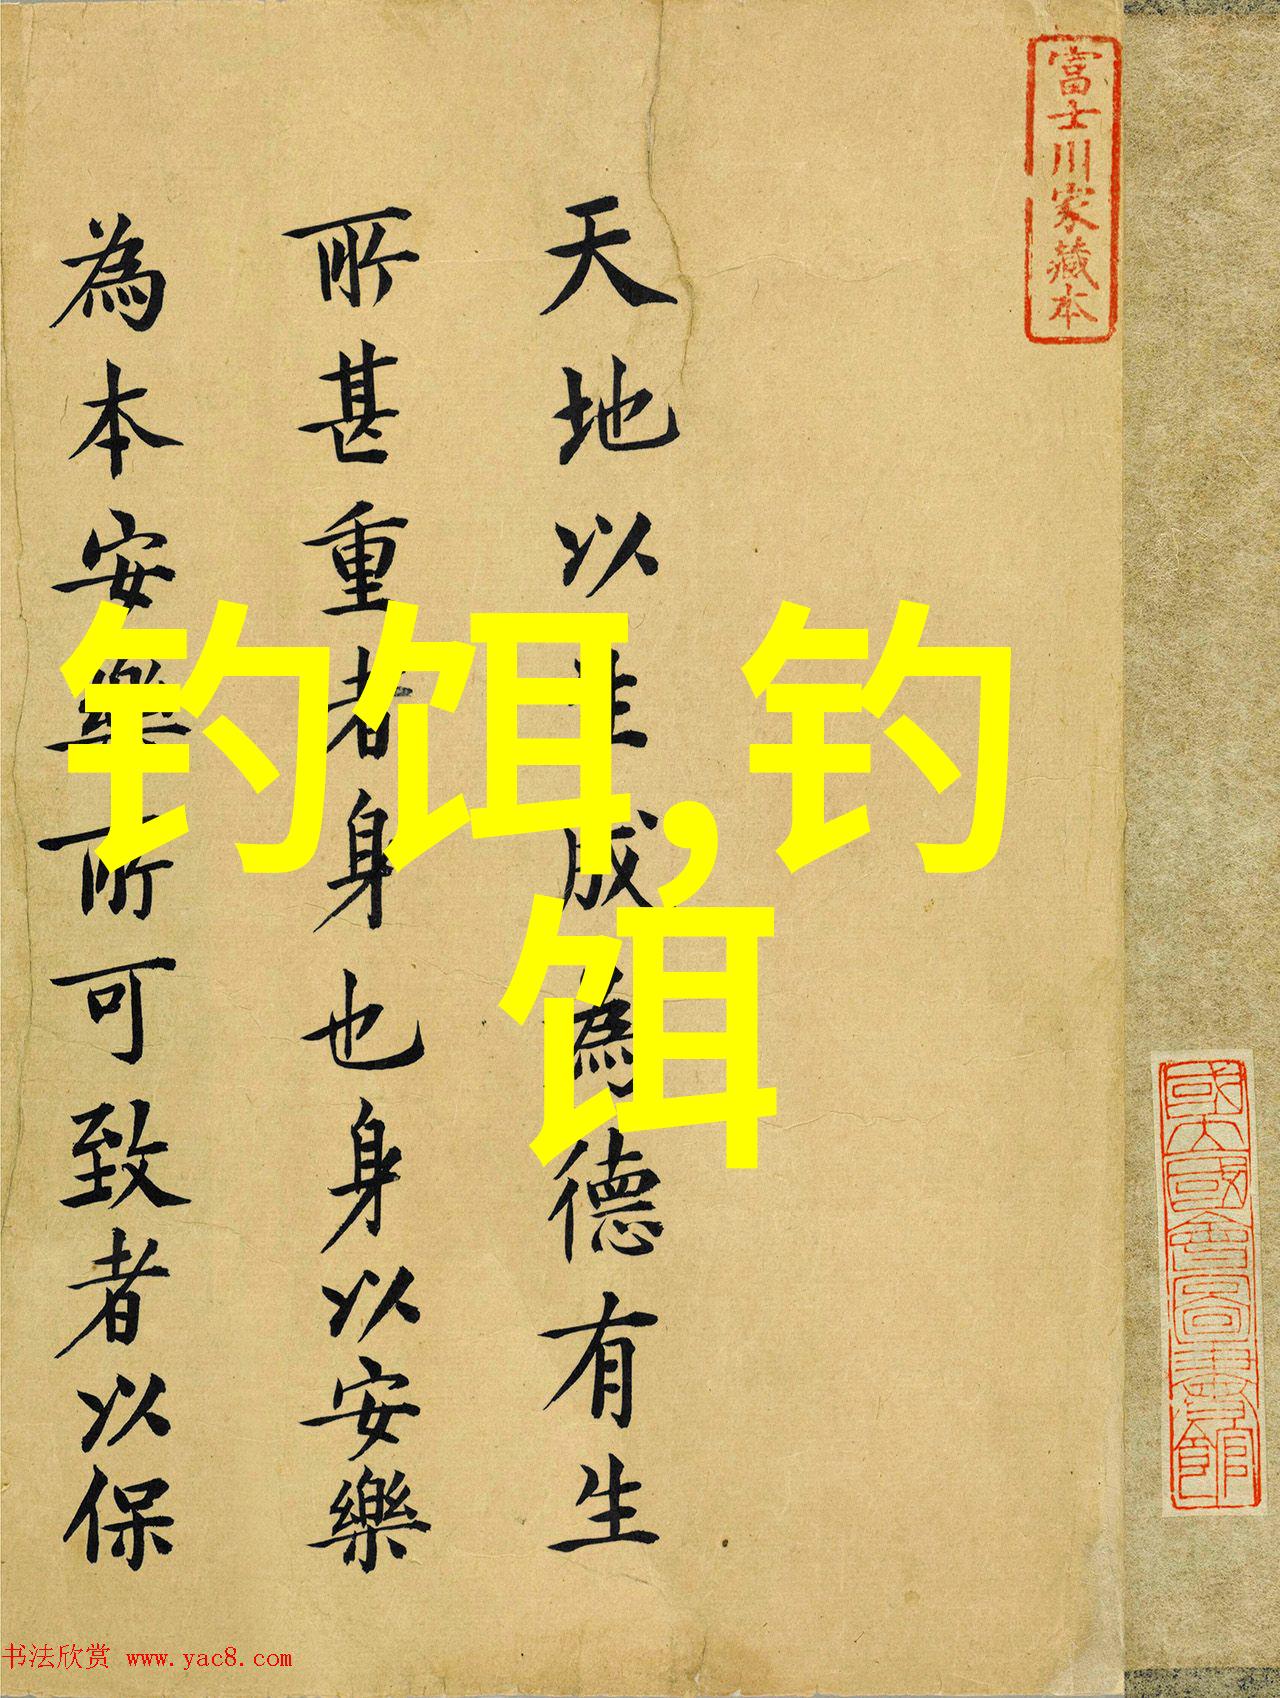 富士川家藏本
天地以生成為德有生
所甚重者身也身以安樂
為本安樂所可致者以保
钓饵,钓
饵
國大國會圖書館
书法欣赏 www.yac8.com